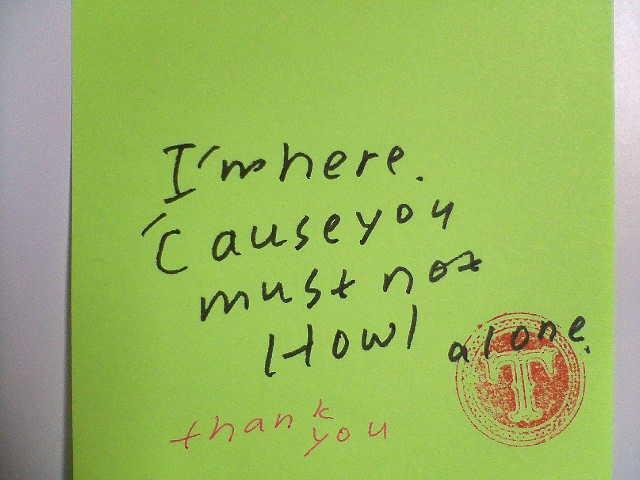 I'm here.
'Cause you
must not
Howl alone.
thank
you
T